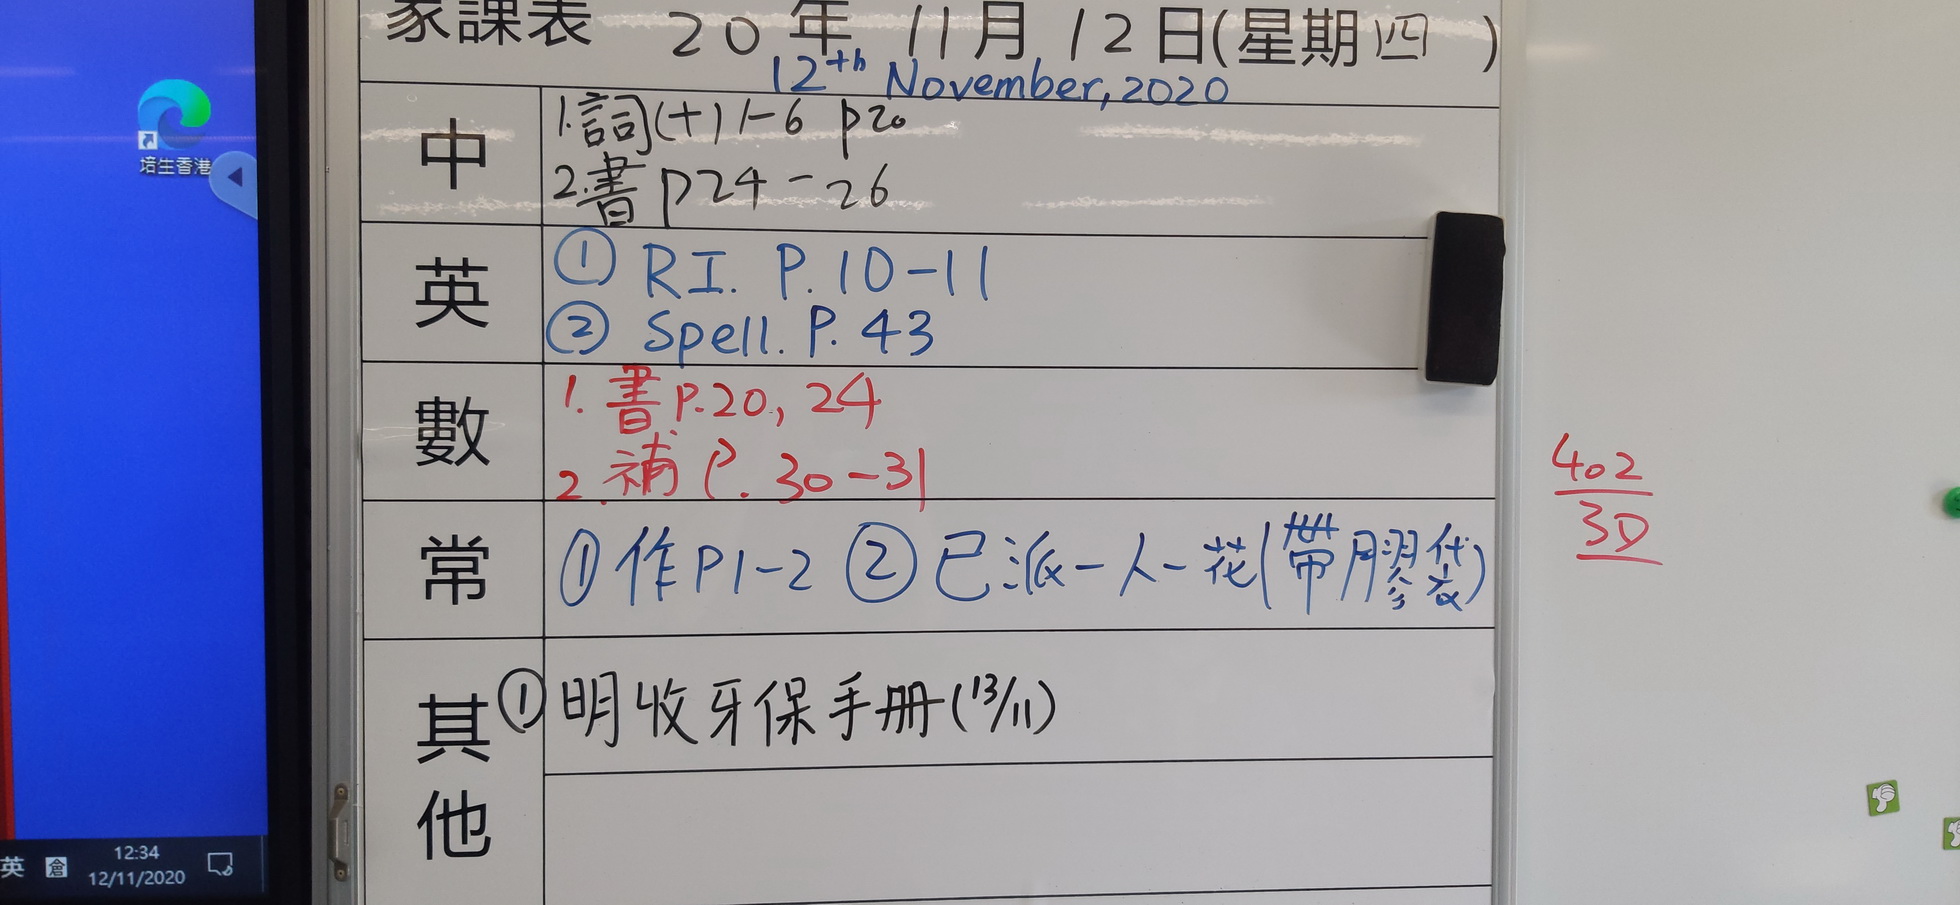 家課表 20年 11月 12日(星期四)
12th November, 2020
中
1.詞(十)1-6 p20
2.書 p24-26
英
① RI. P.10-11
② Spell. P. 43
數
1. 書 P.20, 24
2. 補 P. 30-31
常
①作P1-2 ②已派一人一花(帶膠袋)
其他
①明收牙保手冊(13/11)
402
培生香港
英 倉 12:34
12/11/2020